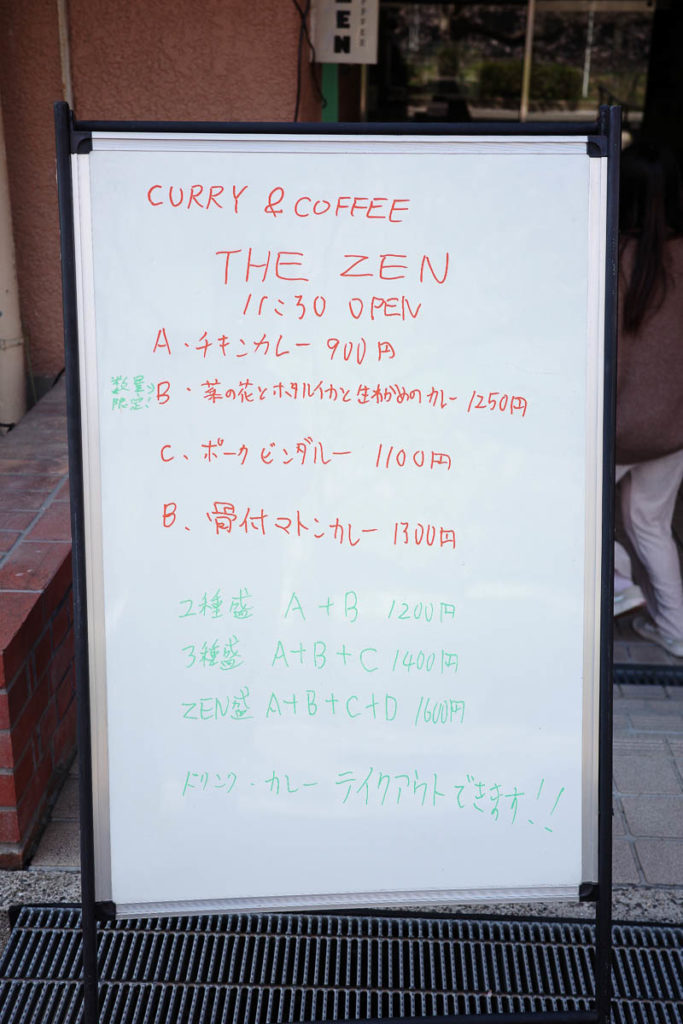 COFFEE
ZEN
CURRY & COFFEE
THE ZEN
11:30 OPEN
A・チキンカレー 900円
数量限定! B・菜の花とホタルイカと生わかめのカレー 1250円
C、ポークビンダルー 1100円
B、骨付マトンカレー 1300円
2種盛 A+B 1200円
3種盛 A+B+C 1400円
ZEN盛 A+B+C+D 1600円
ドリンク・カレー テイクアウトできます!!